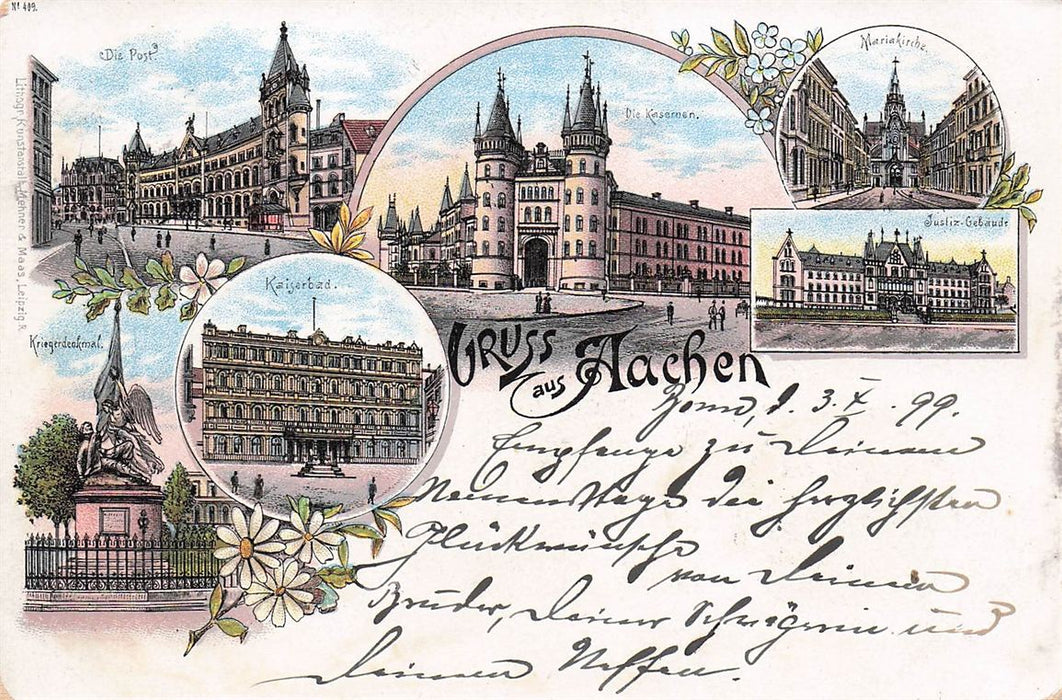 Nº 409.
Die Post.
Die Kasernen.
Mariakirche.
Justiz-Gebäude
Kaiserbad.
Kriegerdenkmal.
Lithogr. Kunstanstalt Mehner & Maas, Leipzig R.
GRUSS
aus Aachen
Bonn, d. 3. X. 99.
Empfange zu Deinem
Namenstage die herzlichsten
Glückwünsche
von Deinem
Bruder, Deiner Schwägerin und
Deinem Neffen.